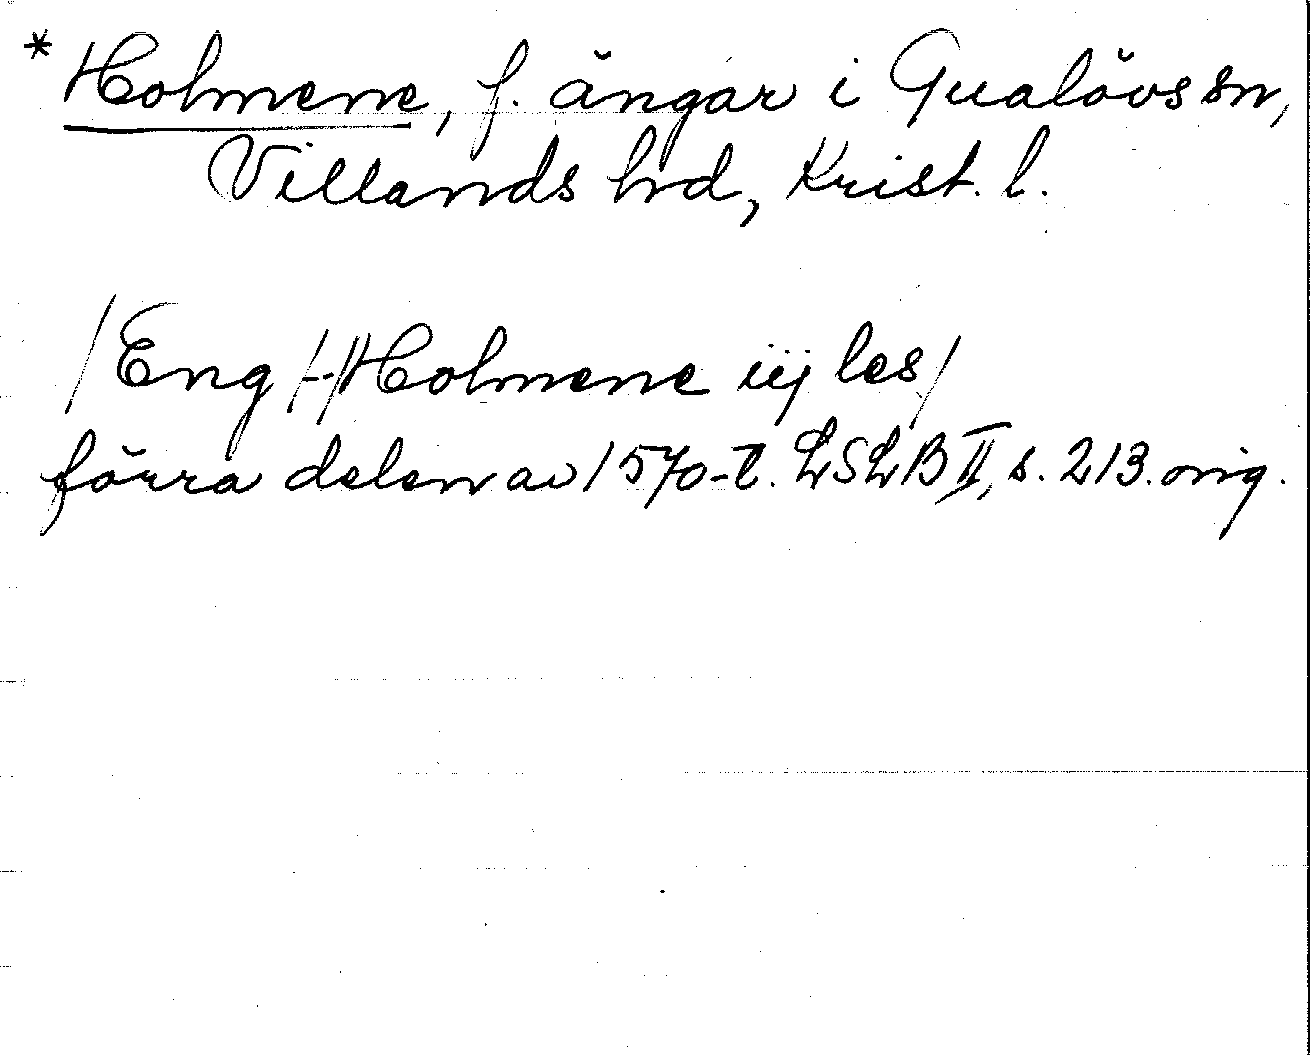 * Holmene, f. ängar i Gualövs sn,
Villands hd, Krist. l.
/Eng/--/Holmene iij les/
förra delen av 1570-t. LSLB II, s. 213. orig.